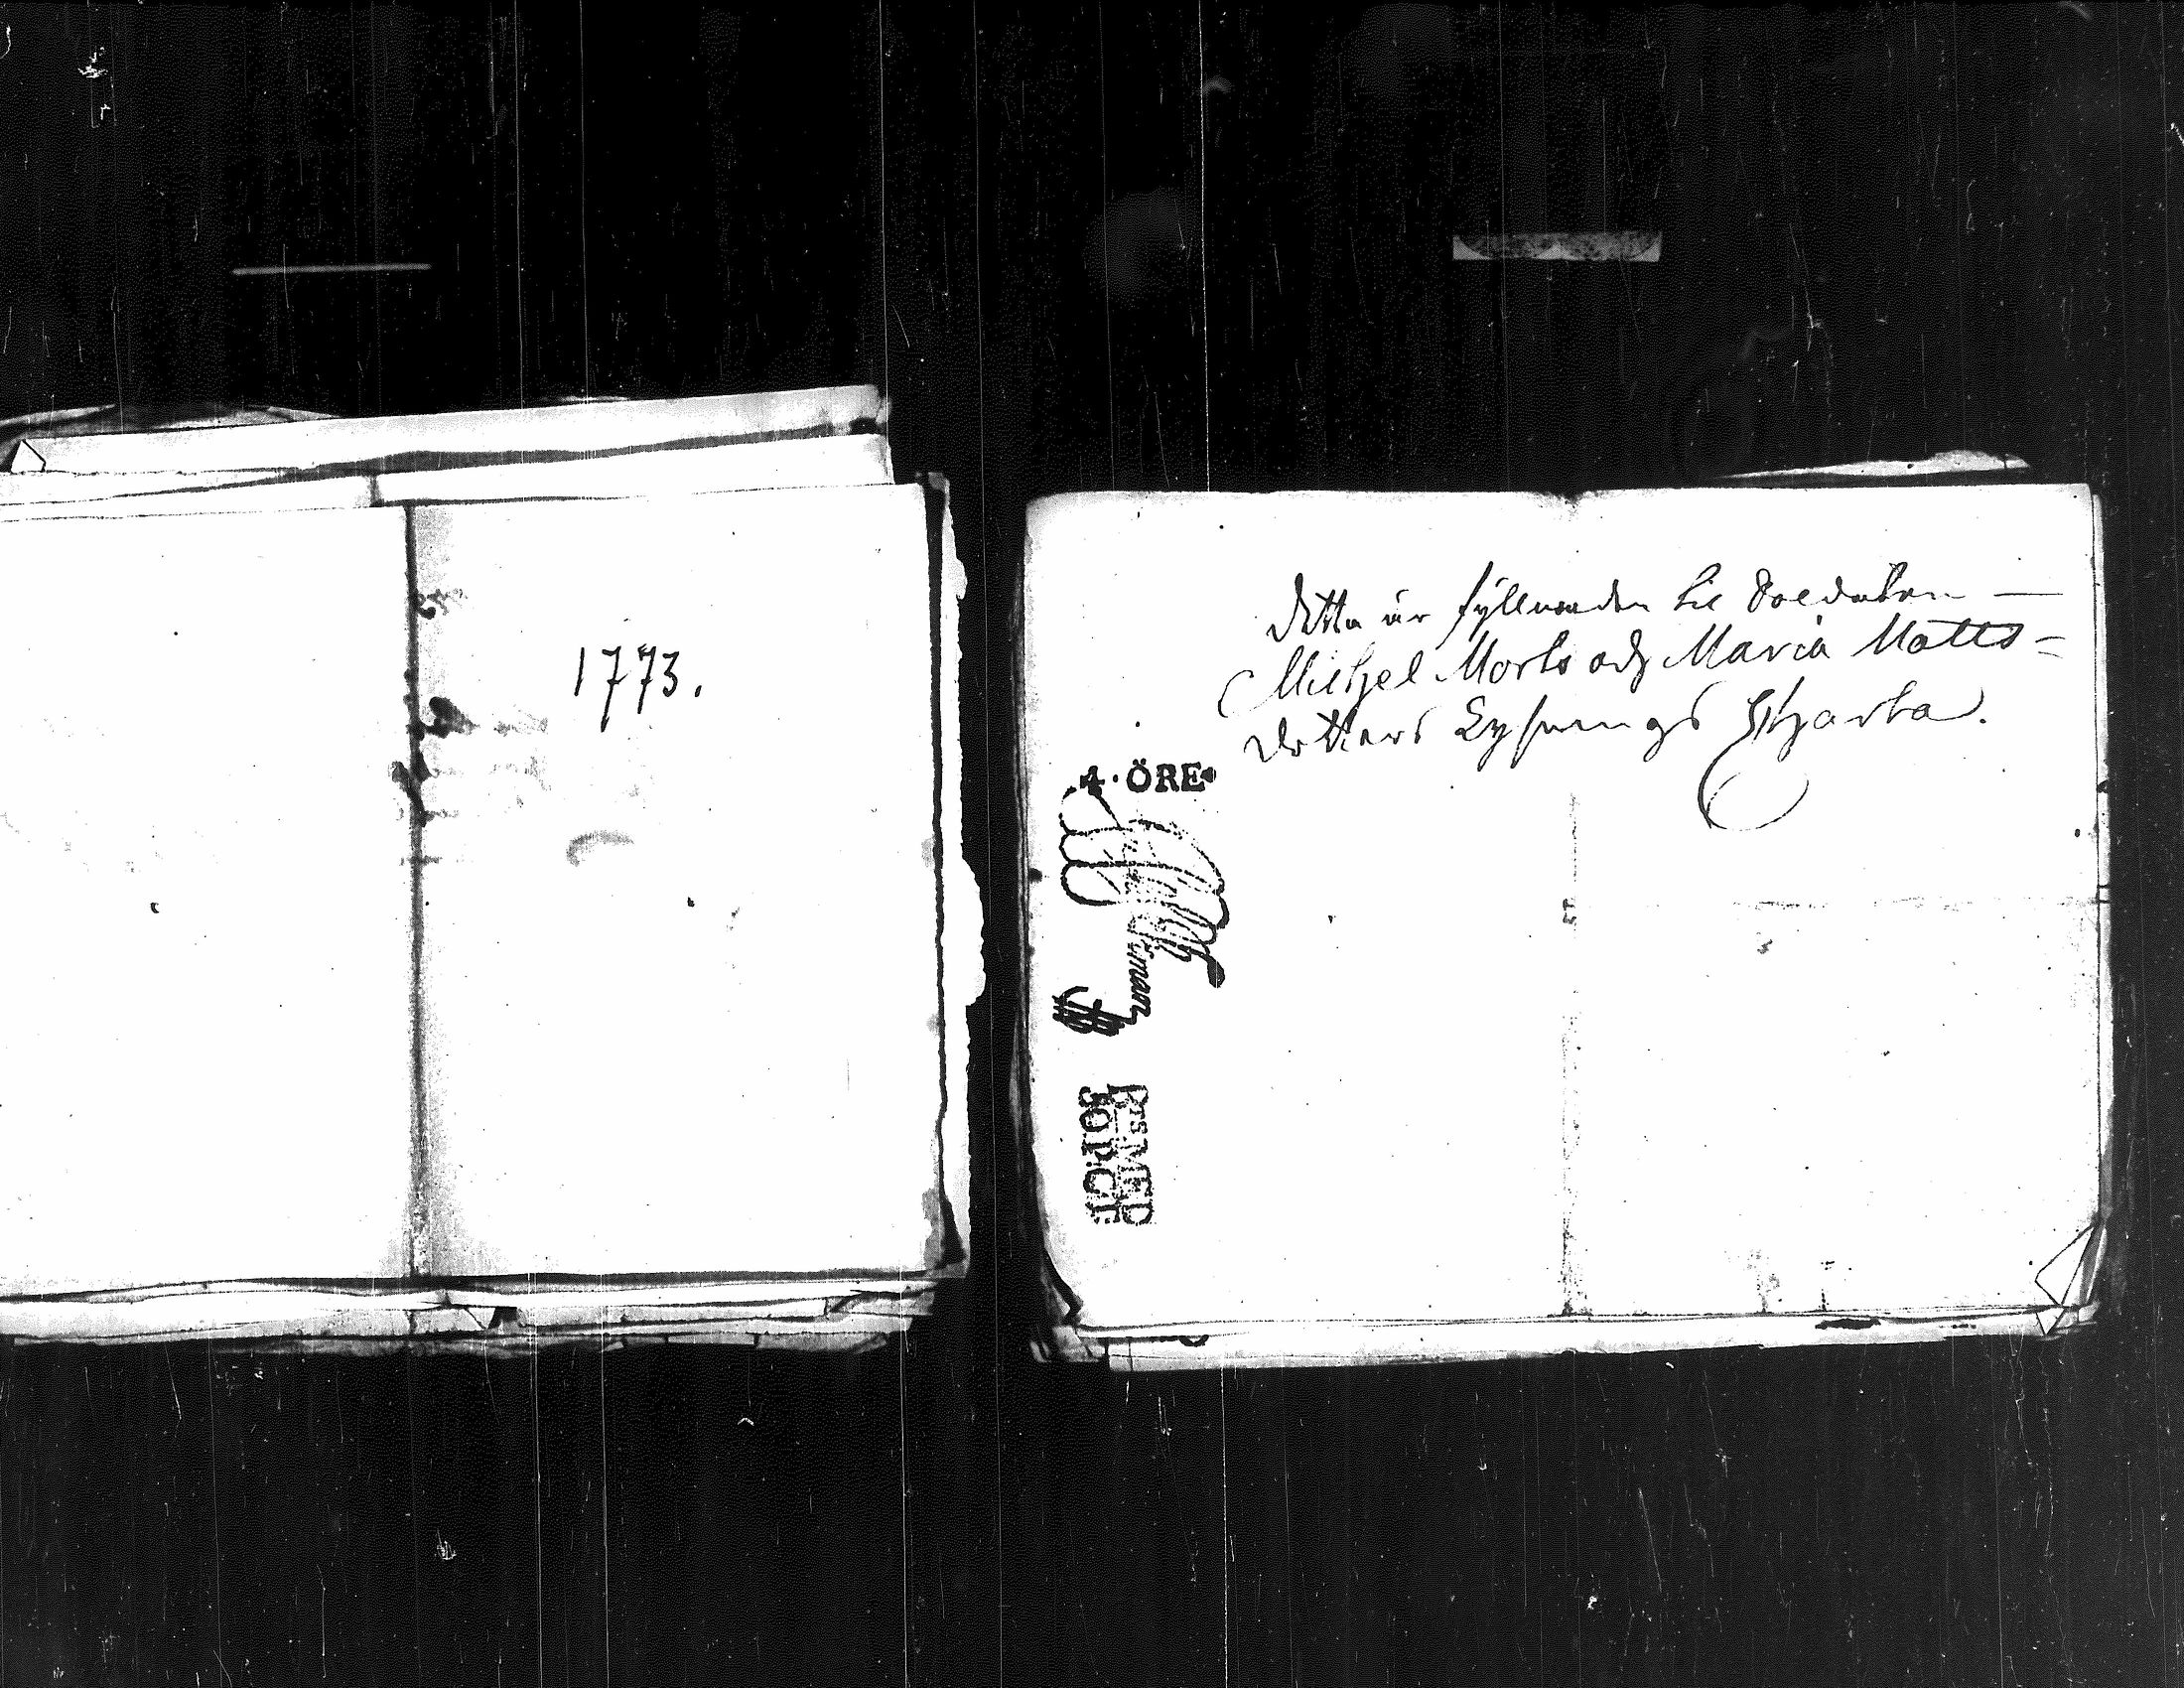 1773.
Detta är fyllnaden til Soldaten —
Michel Morts och Maria Matts=
dotters Lysnings Charta.
4. ÖRE